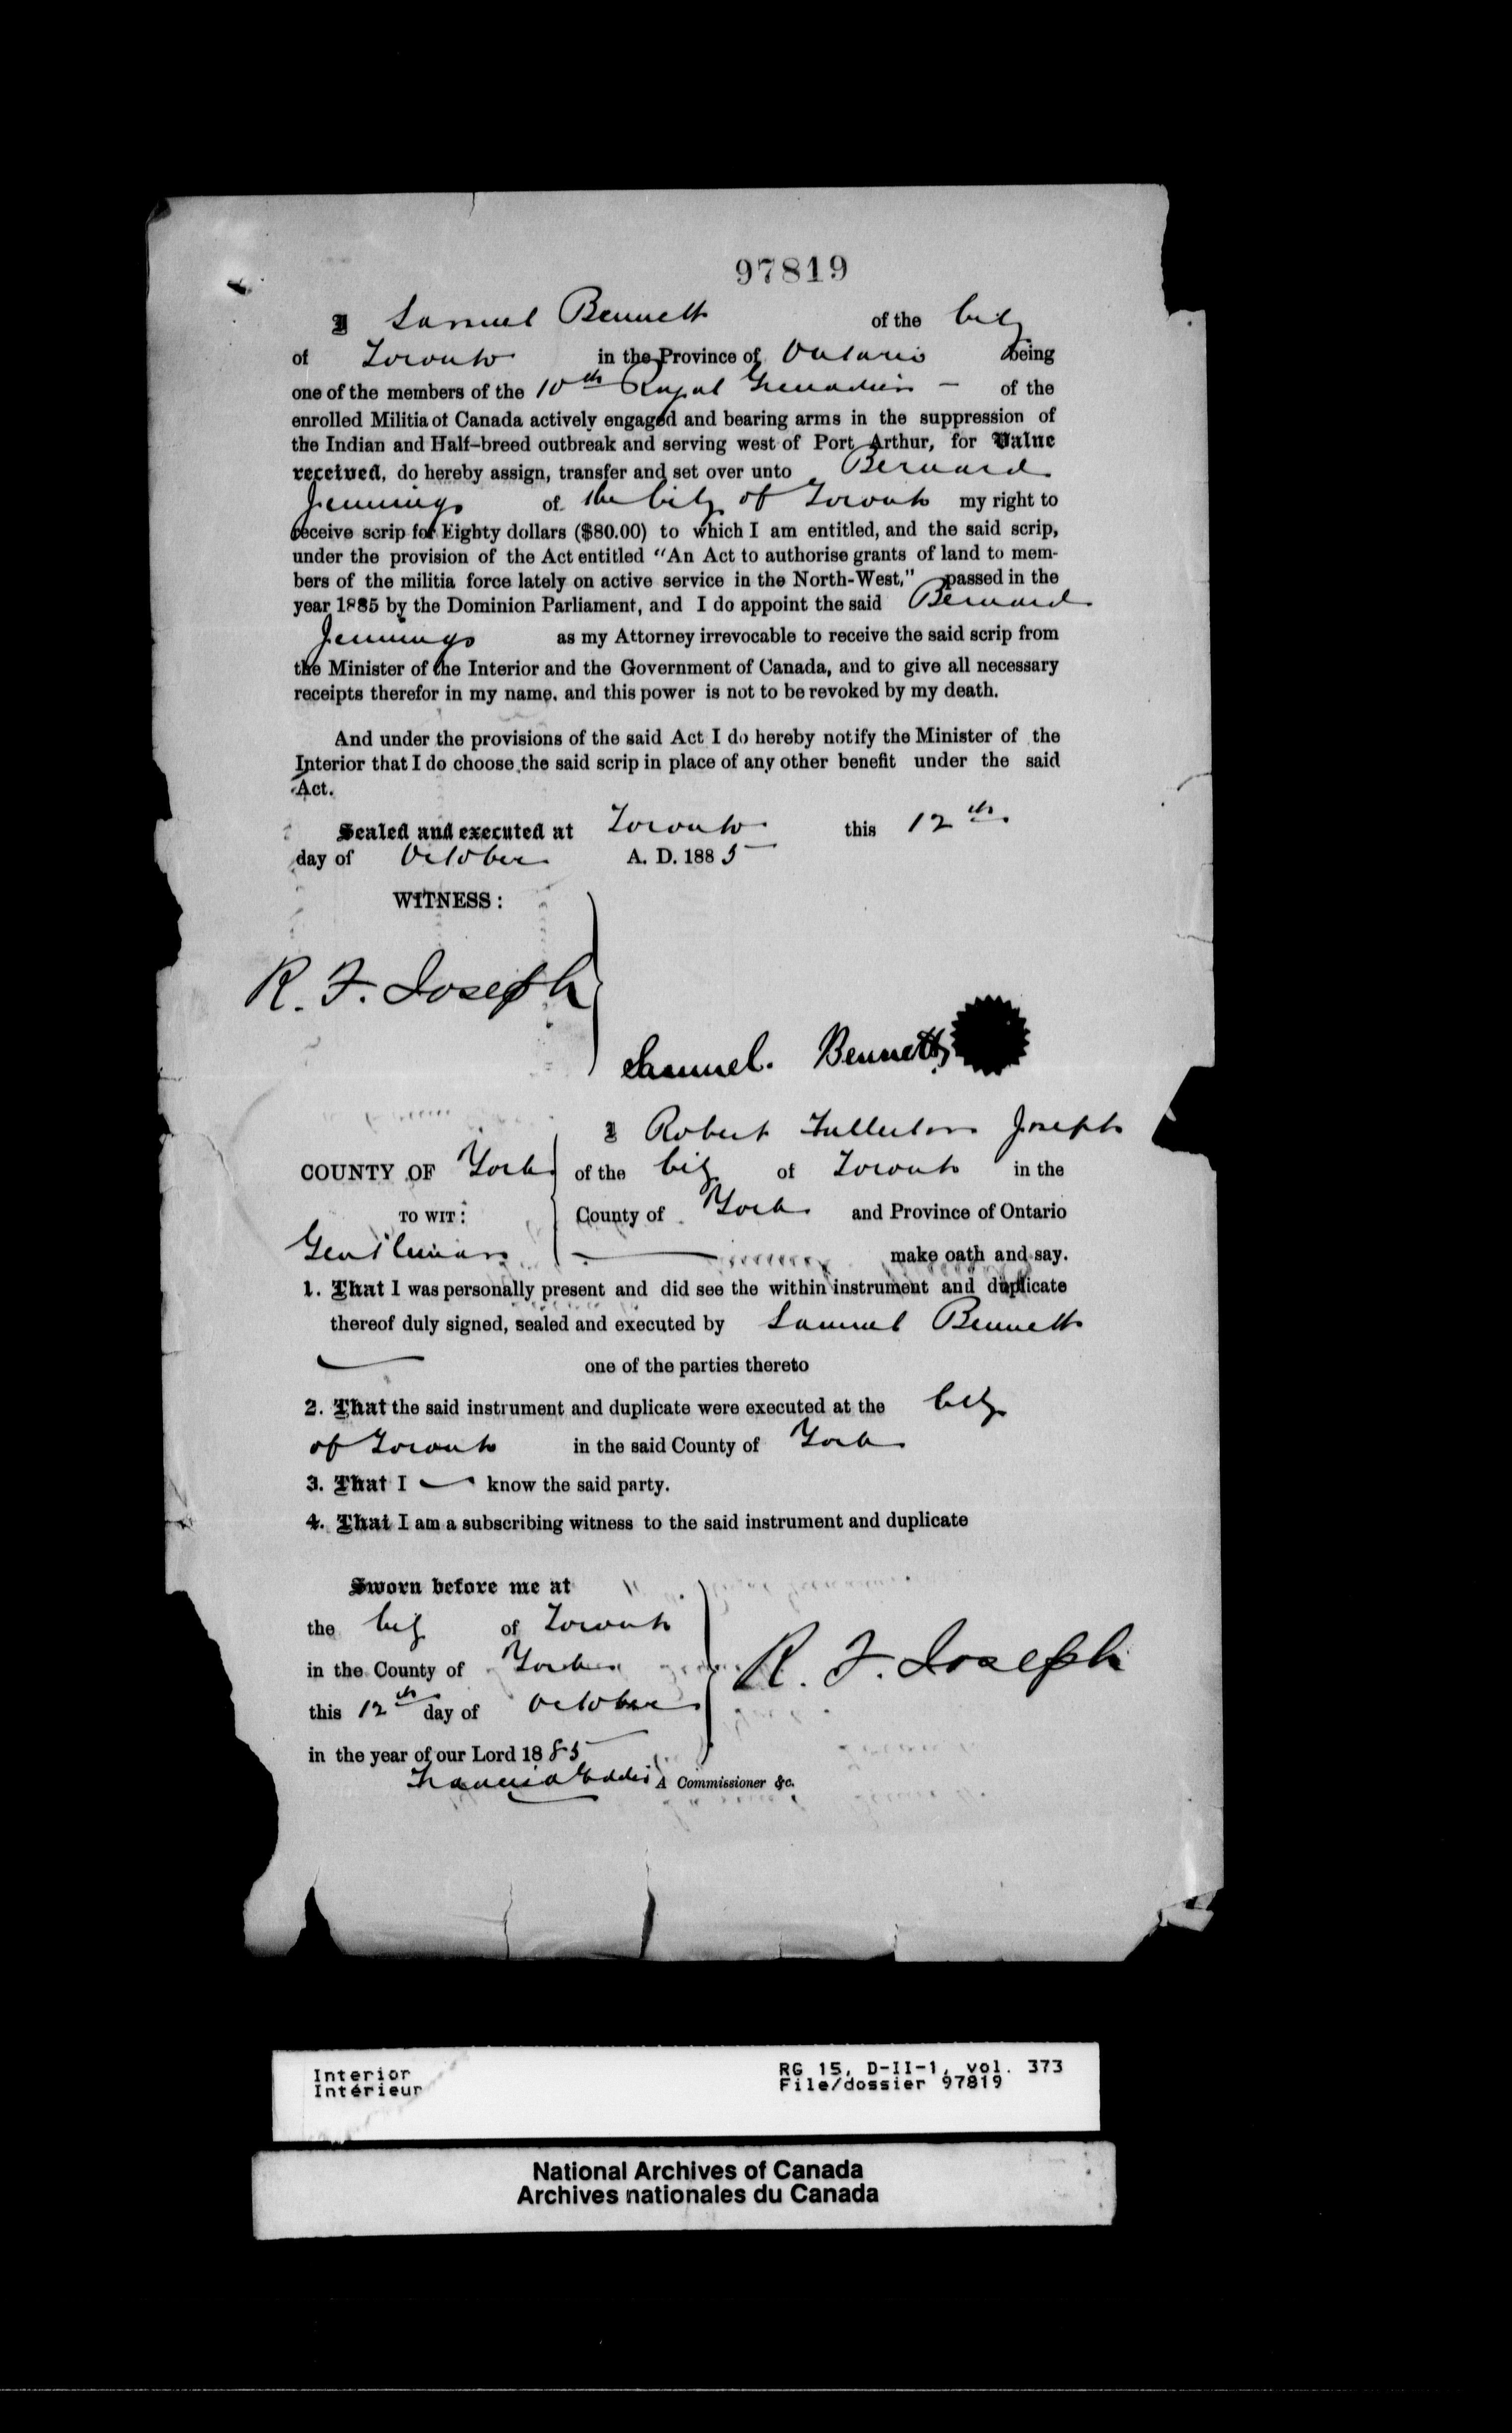 97819
I Samuel Bennett of the City
of Toronto in the Province of Ontario being
one of the members of the 10th Royal Grenadiers — of the
enrolled Militia of Canada actively engaged and bearing arms in the suppression of
the Indian and Half-breed outbreak and serving west of Port Arthur, for Value
received, do hereby assign, transfer and set over unto Bernard
Jennings of the City of Toronto my right to
receive scrip for Eighty dollars ($80.00) to which I am entitled, and the said scrip,
under the provision of the Act entitled "An Act to authorise grants of land to mem-
bers of the militia force lately on active service in the North-West," passed in the
year 1885 by the Dominion Parliament, and I do appoint the said Bernard
Jennings as my Attorney irrevocable to receive the said scrip from
the Minister of the Interior and the Government of Canada, and to give all necessary
receipts therefor in my name, and this power is not to be revoked by my death.
And under the provisions of the said Act I do hereby notify the Minister of the
Interior that I do choose the said scrip in place of any other benefit under the said
Act.
Sealed and executed at Toronto this 12th
day of October A. D. 1885
WITNESS:
R. F. Joseph
Samuel. Bennett
I Robert Fullerton Joseph
COUNTY OF York of the City of Toronto in the
TO WIT: County of York and Province of Ontario
Gentleman make oath and say.
1. That I was personally present and did see the within instrument and duplicate
thereof duly signed, sealed and executed by Samuel Bennett
one of the parties thereto
2. That the said instrument and duplicate were executed at the City
of Toronto in the said County of York
3. That I — know the said party.
4. That I am a subscribing witness to the said instrument and duplicate
Sworn before me at
the City of Toronto
in the County of York
R. F. Joseph
this 12th day of October
in the year of our Lord 1885
Francis Eddis A Commissioner &c.
Interior RG 15, D-II-1, vol. 373
Intérieur File/dossier 97819
National Archives of Canada
Archives nationales du Canada